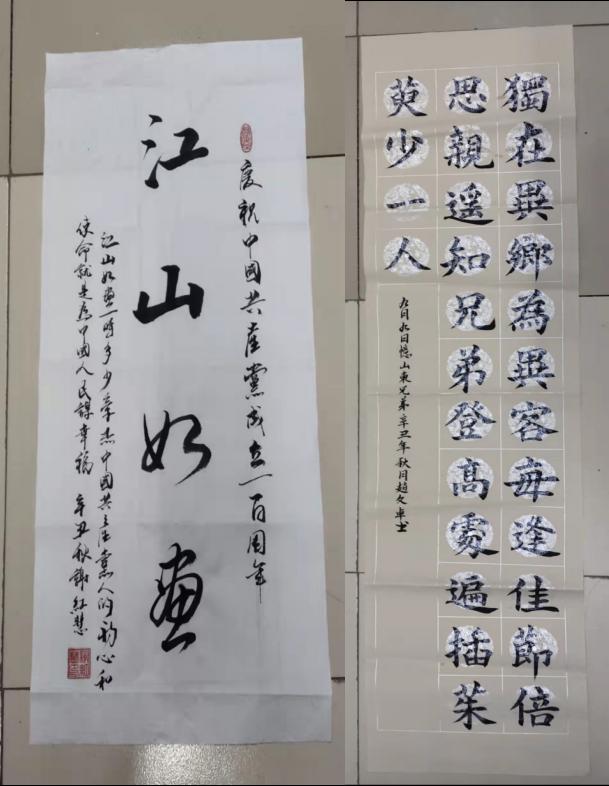 慶祝中國共產黨成立一百周年
江山如畫
江山如畫一時多少豪杰中國共產黨人的初心和
使命就是為中國人民謀幸福 辛丑秋謝紅慧
獨在異鄉為異客每逢佳節倍
思親遥知兄弟登高處遍插茱
萸少一人
九月九日憶山東兄弟辛丑年秋月趙文卓書